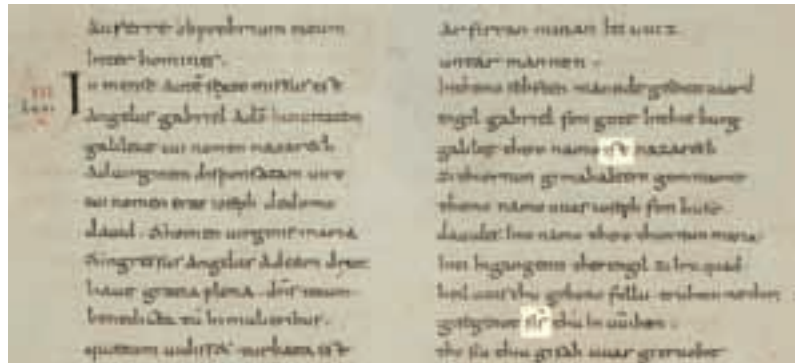 Auferre obprobrium meum
Inter homines.
In mense aut̄ sexto missus est
Angelus gabriel
galileae cui nomen nazareth
Ad uirginem desponsatam uiro
cui nomen erat ioseph de domo
dauid. & nomen uirginis maria
& ingressus Angelus Ad eam
haue gratia plena. dn̄s tecum
benedicta tū In mulieribus.
est
Ar firran minan
untar mannon.
In themo sehsten manude uuard
engil gabriel fon gote In burg
galileę thero namo ist nazareth
zi thiornun gimahaltero gommanne
themo namo uuas ioseph fon huse
dauides Inti namo thero thiornun maria
Inti Ingangenti ther engil zi Iru quad
heil uuis thu gebono follu truhtin
sīs thū In uuībon.
tho siu thiu gisah uuas gitruobit